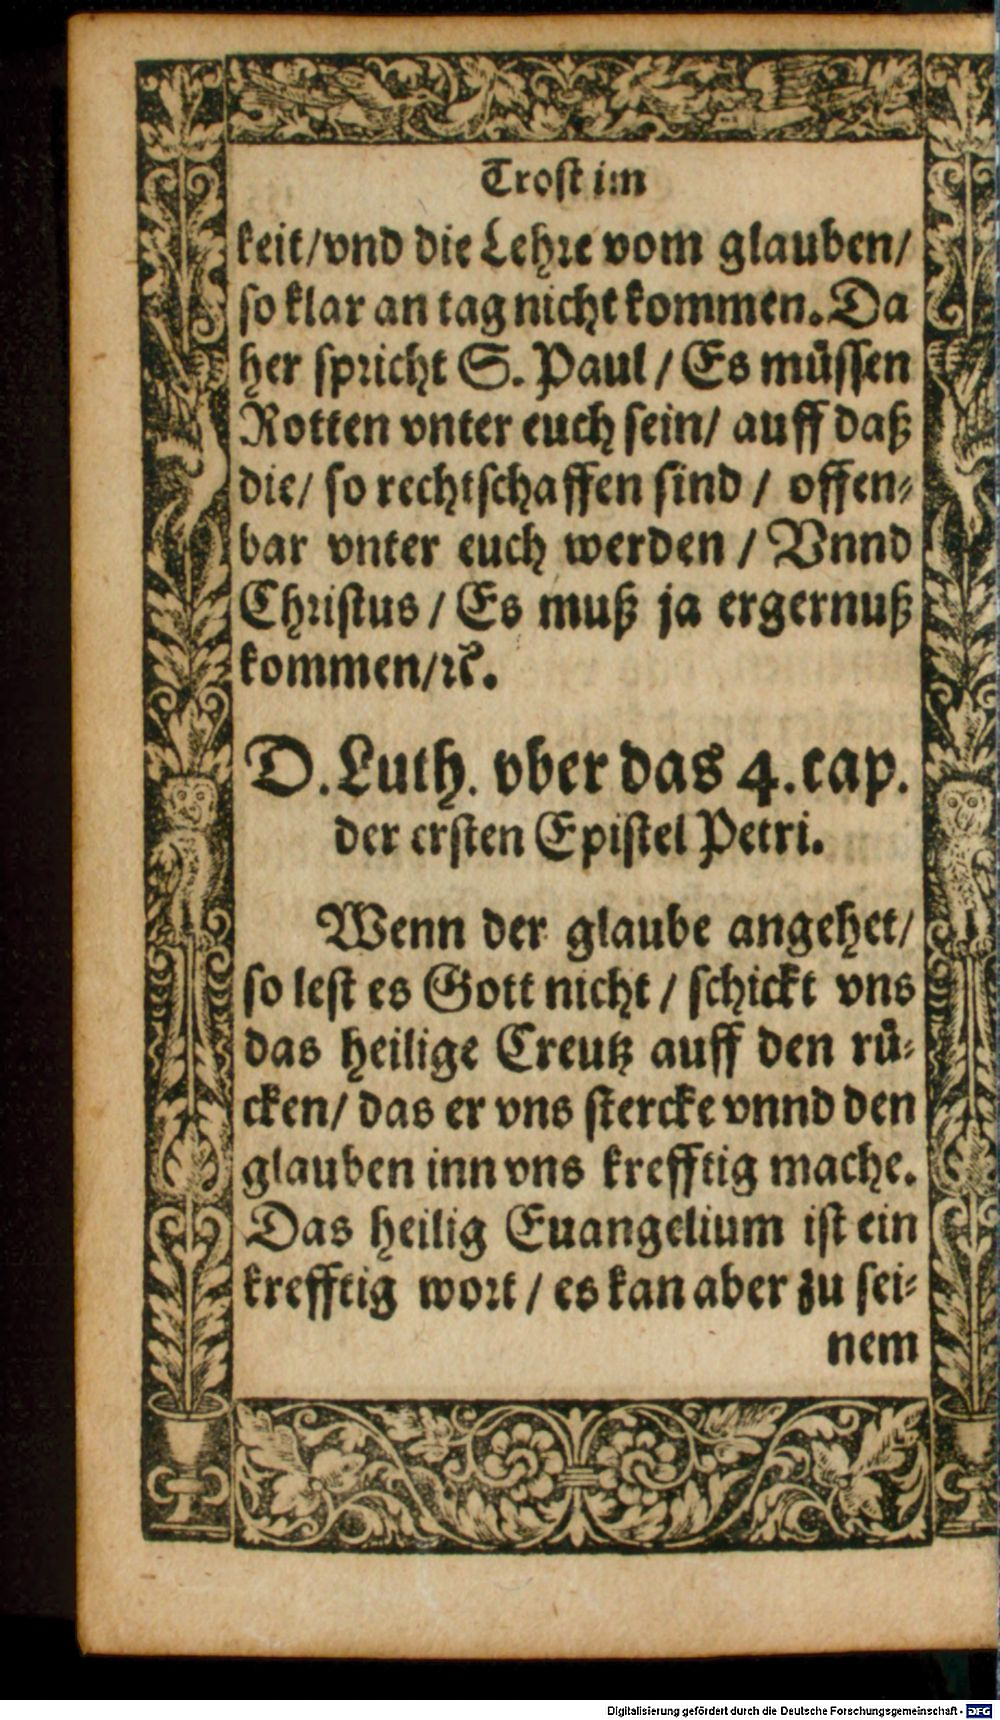 Trost im
keit/vnd die Lehre vom glauben/
so klar an tag nicht kommen. Da
her spricht S. Paul / Es müssen
Rotten vnter euch sein/ auff daß
die/ so rechtschaffen sind / offen-
bar vnter euch werden / Vnnd
Christus / Es muß ja ergernuß
kommen/ꝛc.
D. Luth. vber das 4. cap.
der ersten Epistel Petri.
Wenn der glaube angehet/
so lest es Gott nicht / schickt vns
das heilige Creutz auff den rü-
cken/ das er vns stercke vnnd den
glauben inn vns krefftig mache.
Das heilig Euangelium ist ein
krefftig wort / es kan aber zu sei-
nem
Digitalisierung gefördert durch die Deutsche Forschungsgemeinschaft - DFG